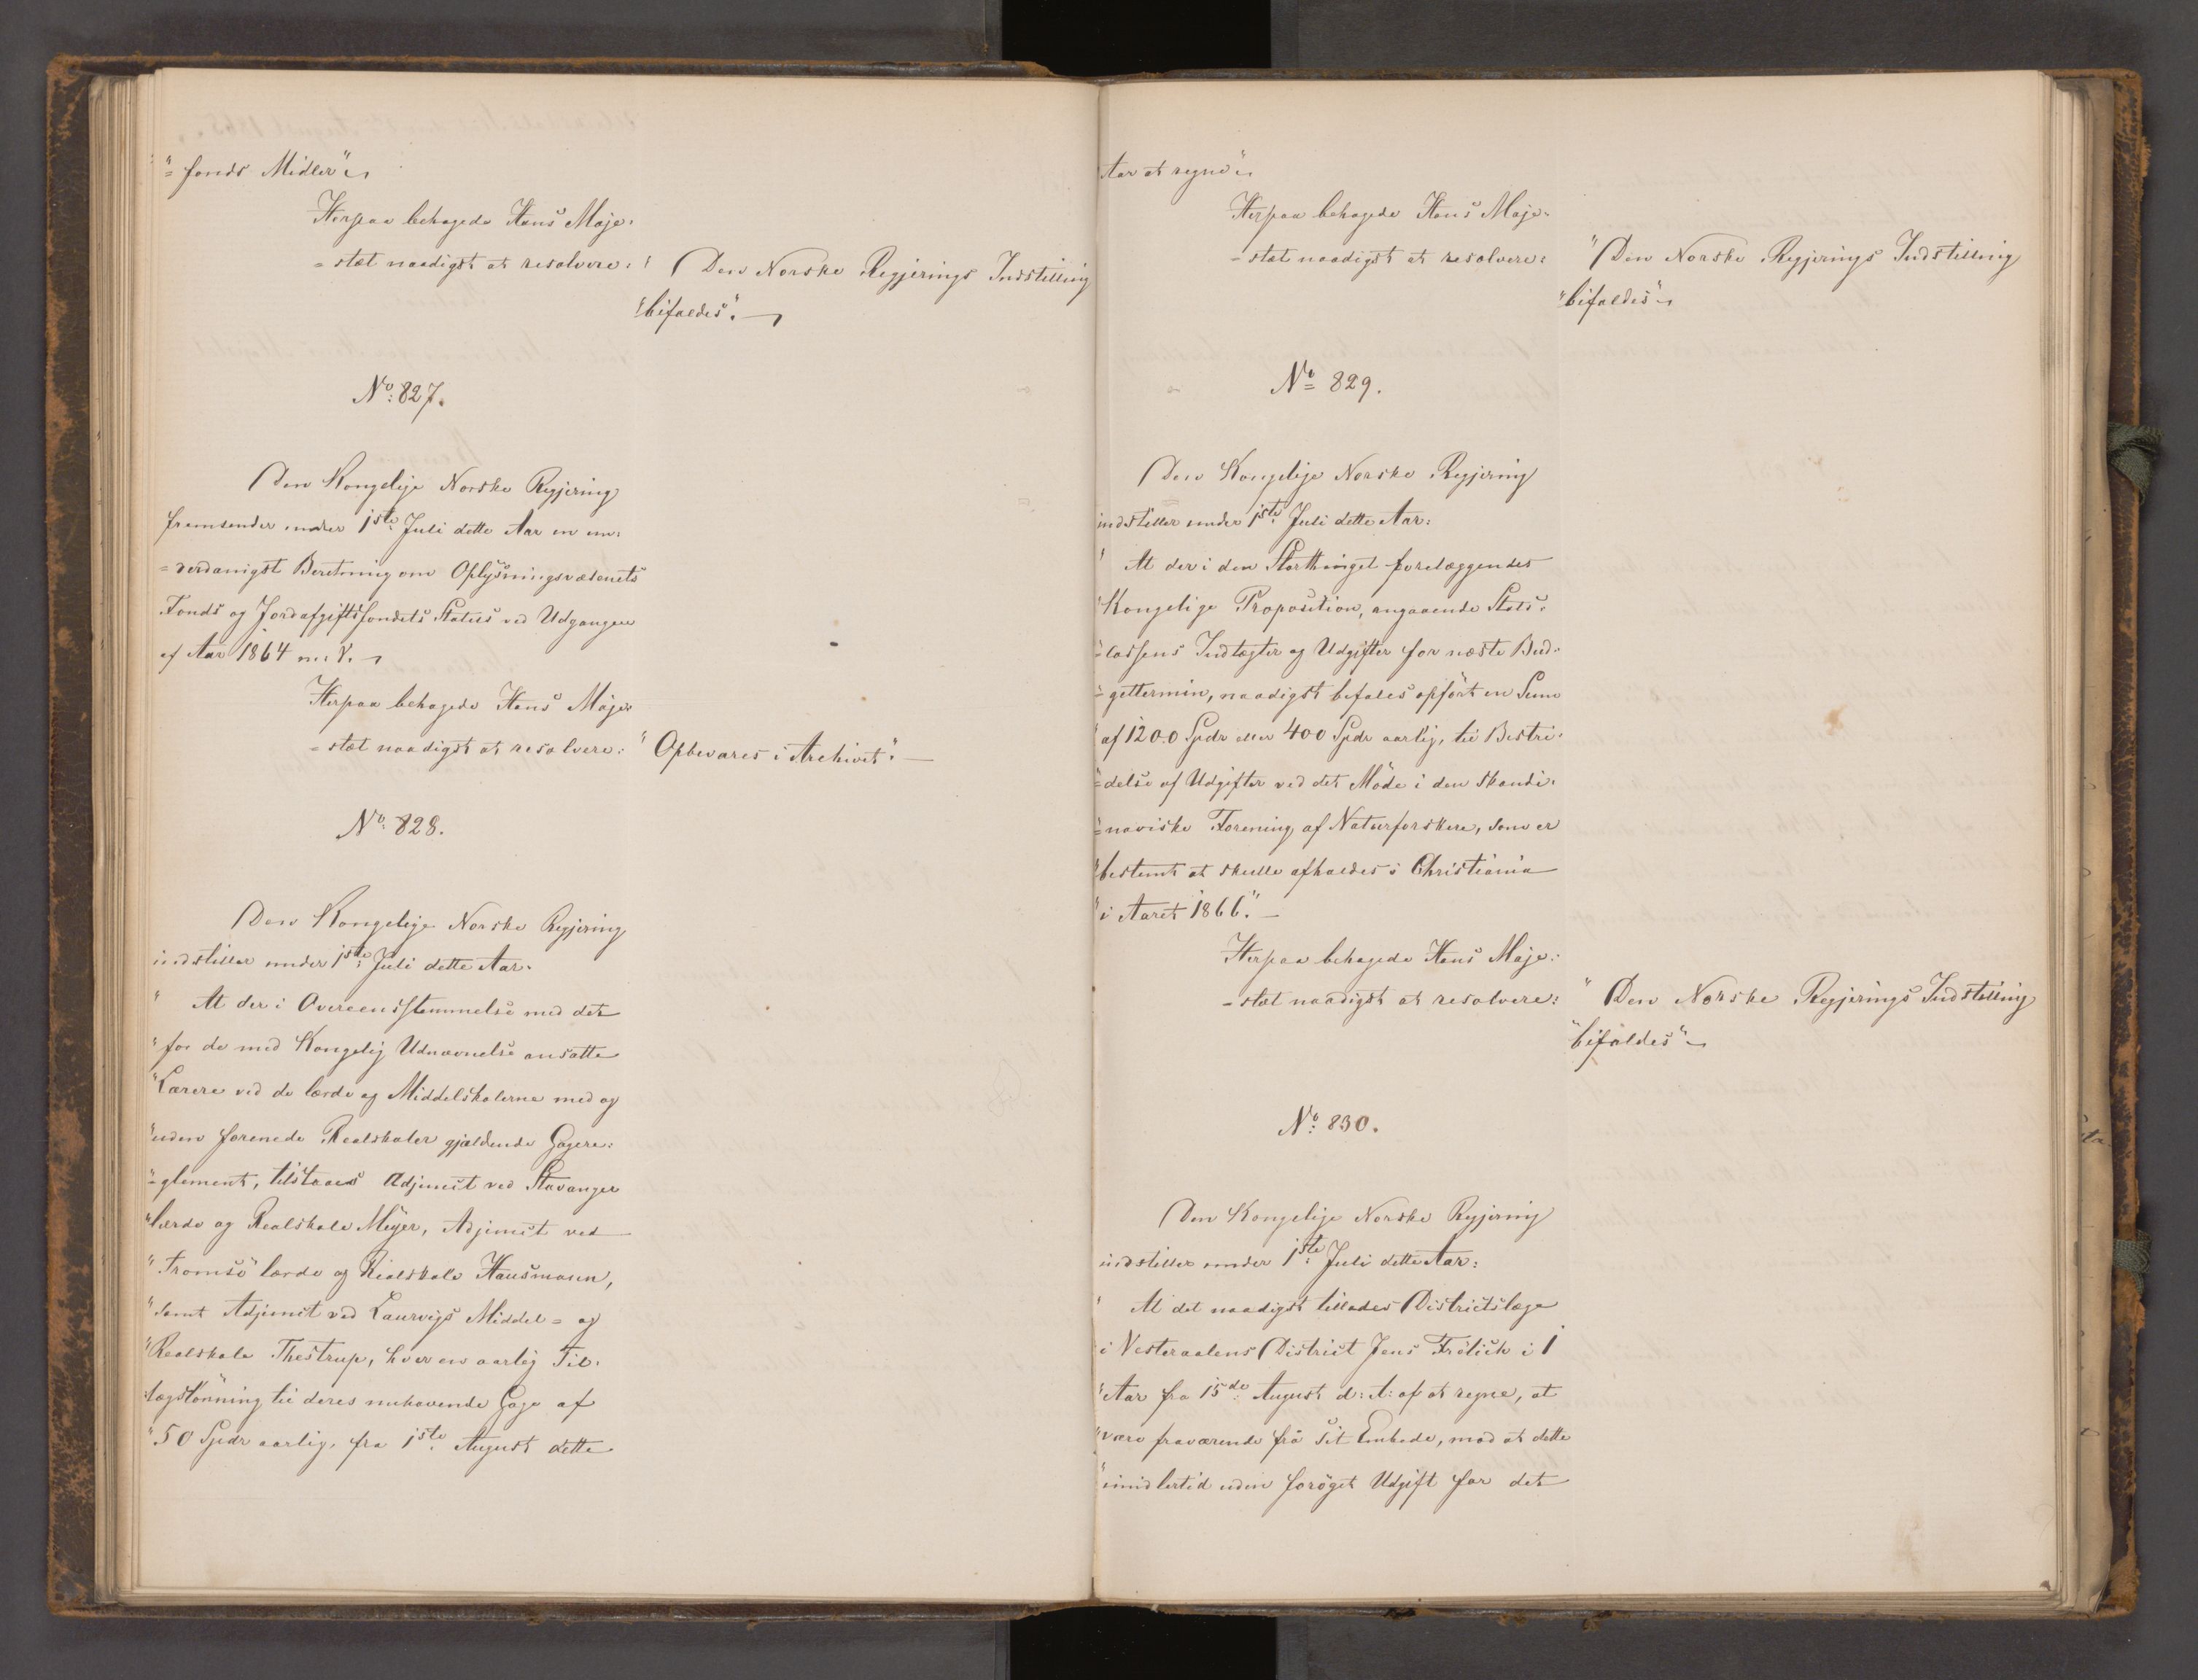 "= fonds Midler"
Herpaa behagede Hans Maje-
= stæt naadigst at resolvere: " Den Norske Regjerings Indstilling
"bifaldes".
No: 827.
Den Kongelige Norske Regjering
fremsender under 1ste Juli dette Aar en un-
= derdanigst Beretning om Oplysningsvæsenets
Fonds og Jordafgiftsfondets Status ved Udgangen
af Aar 1864 m. V.
Herpaa behagede Hans Maje-
= stæt naadigst at resolvere: "Opbevares i Archivet".
No: 828.
Den Kongelige Norske Regjering
indstiller under 1ste Juli dette Aar:
" At der i Overeensstemmelse med det
"for de med Kongelig Udnævnelse ansatte
"Lærere ved de lærde og Middelskolerne med og
"uden forenede Realskoler gjældende Gagere-
"= glement, tilstaaes Adjunct ved Stavanger
"lærde og Realskole Meyer, Adjunct ved
"Tromsö lærde og Realskole Hausmann,
"samt Adjunct ved Laurvigs Middel= og
"Realskole Thestrup, hver en aarlig Til-
"lægslönning til deres nuhavende Gage af
"50 Spdr aarlig, fra 1ste August dette
Aar at regne"
Herpaa behagede Hans Maje-
= stæt naadigst at resolvere: "Den Norske Regjerings Indstilling
"bifaldes"
No 829.
Den Kongelige Norske Regjering
indstiller under 1ste Juli dette Aar:
" At der i den Storthinget forelæggendes
"Kongelige Proposition, angaaende Stats-
"= cassens Indtægter og Udgifter for næste Bud-
"= gettermin, naadigst befales opfört en Sum
"af 1200 Spdr eller 400 Spdr aarlig, til Bestri-
"= delse af Udgifter ved det Möde i den Skandi-
"= naviske Forening af Naturforskere, som er
"bestemt at skulle afholdes i Christiania
"i Aaret 1866".
Herpaa behagede Hans Maje-
= stæt naadigst at resolvere: " Den Norske Regjerings Indstilling
"bifaldes"
No: 830.
Den Kongelige Norske Regjering
indstiller under 1ste Juli dette Aar:
" At det naadigst tillades Districtslæge
i Vesteraalens District Jens Frölich i 1
"Aar fra 15de August d: A: af at regne, at
"være fraværende fra sit Embede, mod at dette
"imidlertid uden foröget Udgift for det